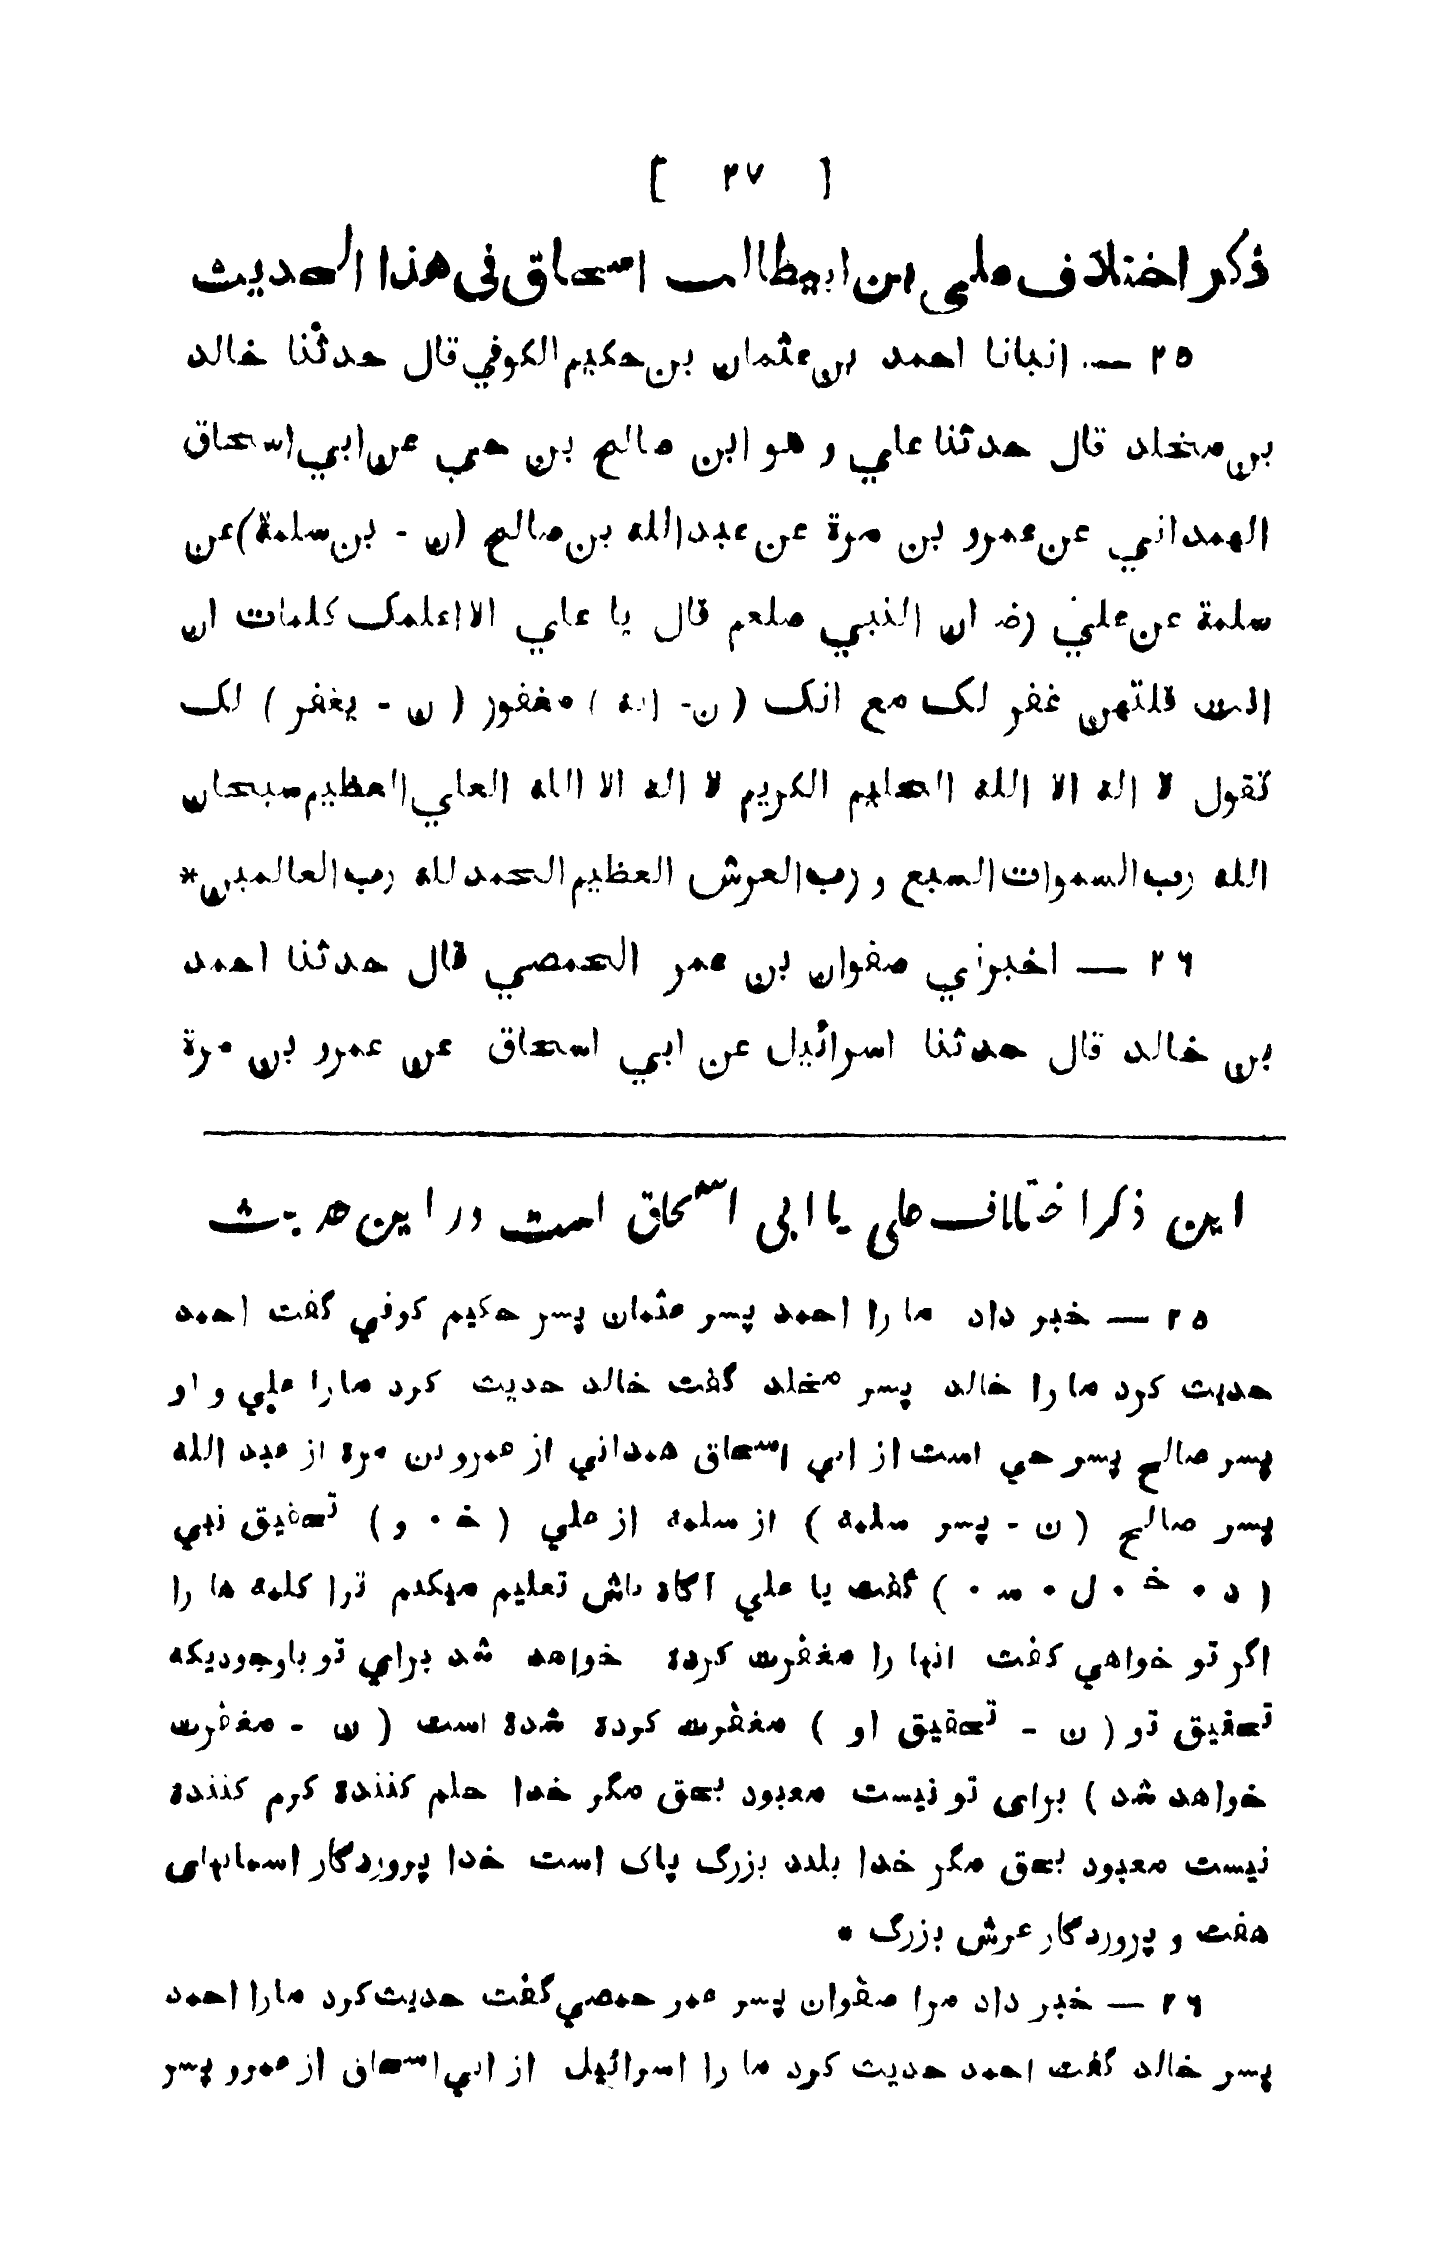 [ ٣٧ ]
ذكر اختلاف على ابن ابيطالب اسحاق فى هذا الحديث
٢٥ — انبانا احمد بن عثمان بن حكيم الكوفي قال حدثنا خالد
بن مخلد قال حدثنا علي و هو ابن صالح بن حي عن ابي اسحاق
الهمداني عن عمرو بن مرة عن عبدالله بن صالح (ن - بن سلمة) عن
سلمة عن علي رضـ ان النبي صلعم قال يا علي الا اعلمك كلمات ان
انت قلتهن غفر لك مع انك ( ن- انه ) مغفور ( ن - يغفر ) لك
تقول لا اله الا الله الحليم الكريم لا اله الا الله العلي العظيم سبحان
الله رب السموات السبع و رب العرش العظيم الحمد لله رب العالمين *
٢٦ — اخبرني صفوان بن عمر الحمصي قال حدثنا احمد
بن خالد قال حدثنا اسرائيل عن ابي اسحاق عن عمرو بن مرة
اين ذكر اختلاف على يا ابى اسحاق است در اين حديث
٢٥ — خبر داد ما را احمد پسر عثمان پسر حكيم كوفي گفت احمد
حديث كرد ما را خالد پسر مخلد گفت خالد حديث كرد ما را علي و او
پسر صالح پسر حي است از ابي اسحاق همداني از عمرو بن مرة از عبد الله
پسر صالح ( ن - پسر سلمه ) از سلمه از علي ( خ ٠ و ) تحقيق نبي
( د ٠ خ ٠ ل ٠ س ٠ ) گفت يا علي آگاه باش تعليم ميكدم ترا كلمه ها را
اگر تو خواهي گفت انها را مغفرت كرده خواهد شد براي تو باوجوديكه
تحقيق تو ( ن - تحقيق او ) مغفرت كرده شده است ( ن - مغفرت
خواهد شد ) براى تو نيست معبود بحق مگر خدا حلم كننده كرم كننده
نيست معبود بحق مگر خدا بلند بزرگ پاک است خدا پروردگار اسمانهاى
هفت و پروردگار عرش بزرگ *
٢٦ — خبر داد مرا صفوان پسر عمر حمصي گفت حديث كرد ما را احمد
پسر خالد گفت احمد حديث كرد ما را اسرائيل از ابي اسحاق از عمرو پسر